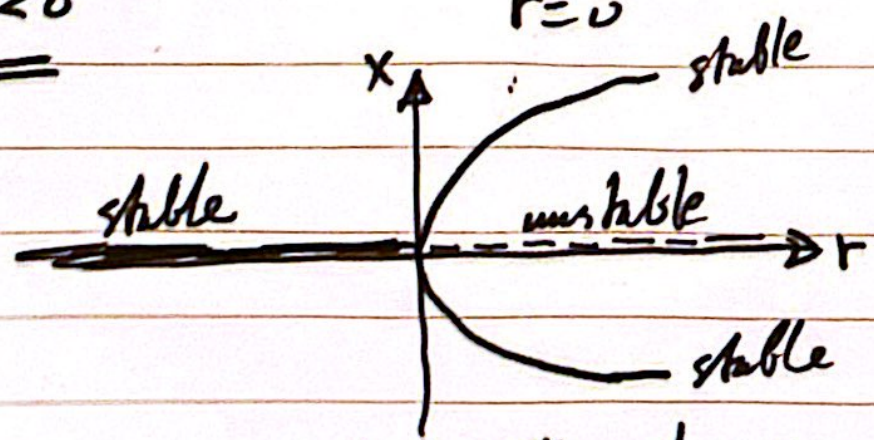 <0
r=0
x
stable
stable
unstable
r
stable